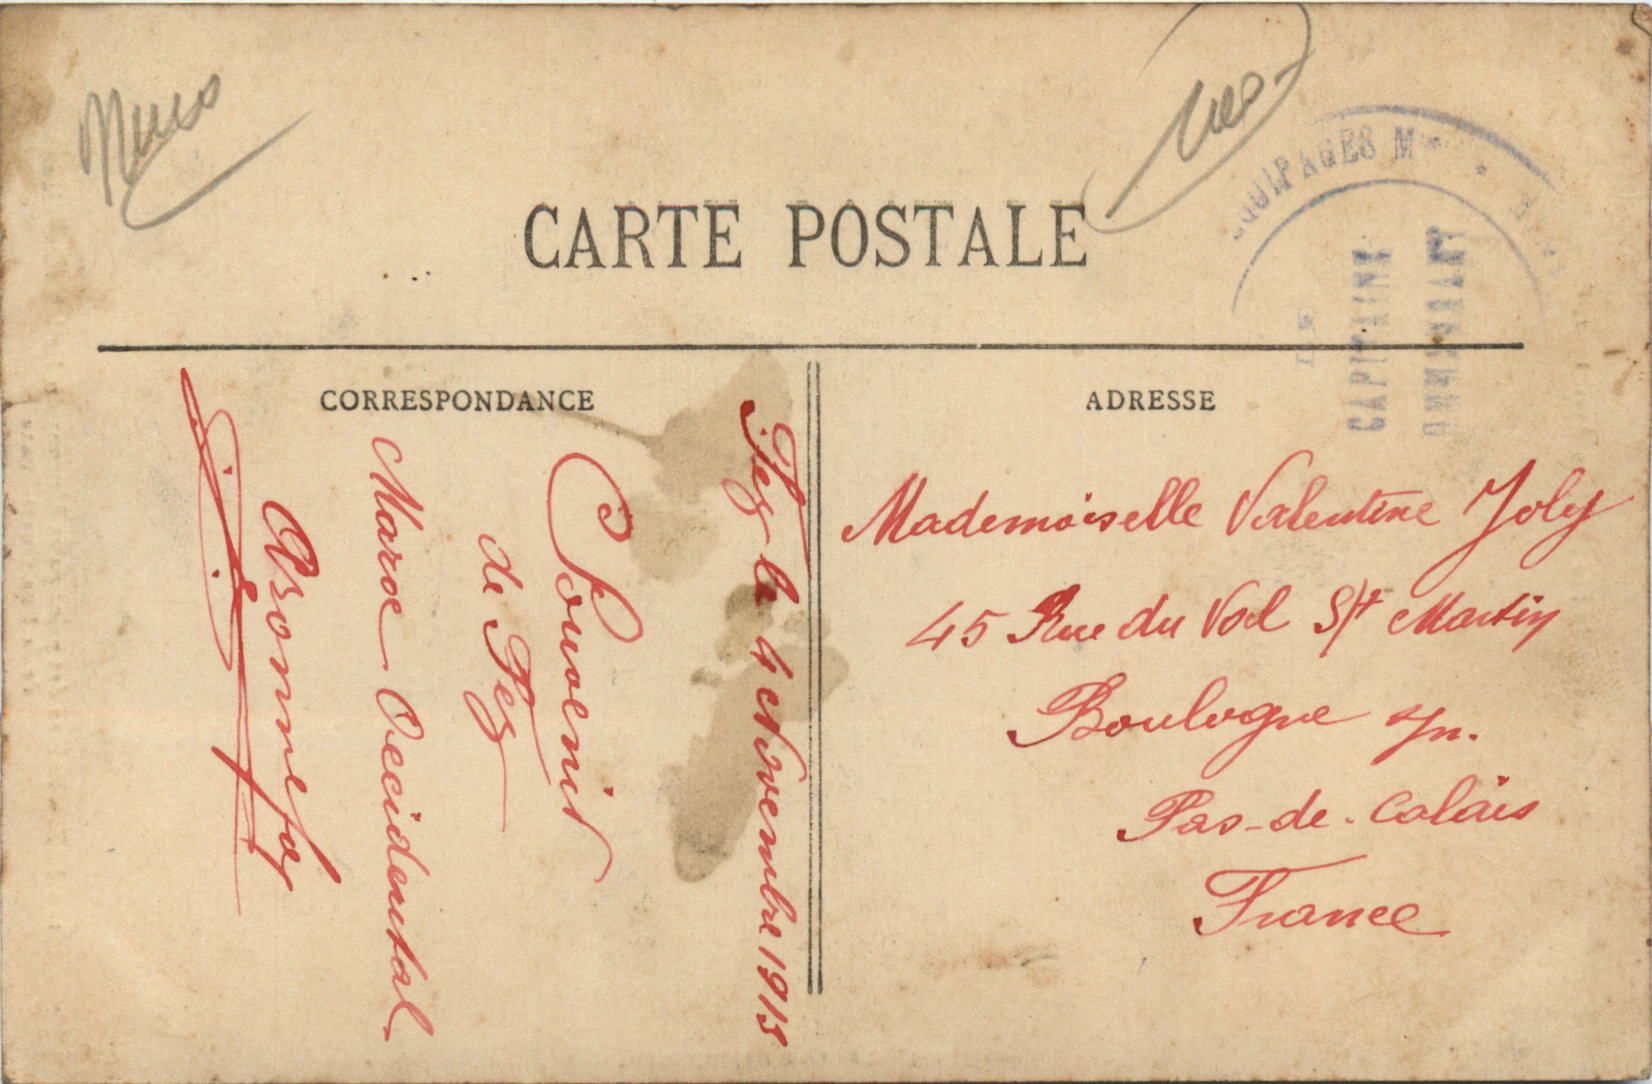 CARTE POSTALE
EQUIPAGES Mres
LE
CAPITAINE
COMMANDANT
CORRESPONDANCE
Fez le 4 Novembre 1913
Souvenir
de Fez
Maroc Occidental
ABonnefoy
ADRESSE
Mademoiselle Valentine Joly
45 Rue du Val St Martin
Boulogne s/m.
Pas-de-Calais
France